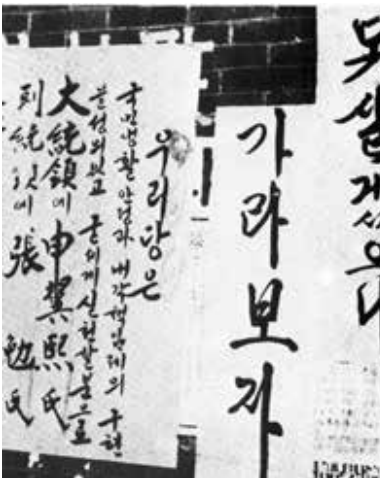 못살
가라보자
우리당은
국민생활안정과 내각책임제의 구현
을성의있고 굳세게실현할분으로
大統領에 申翼熙氏
副統領에 張勉氏